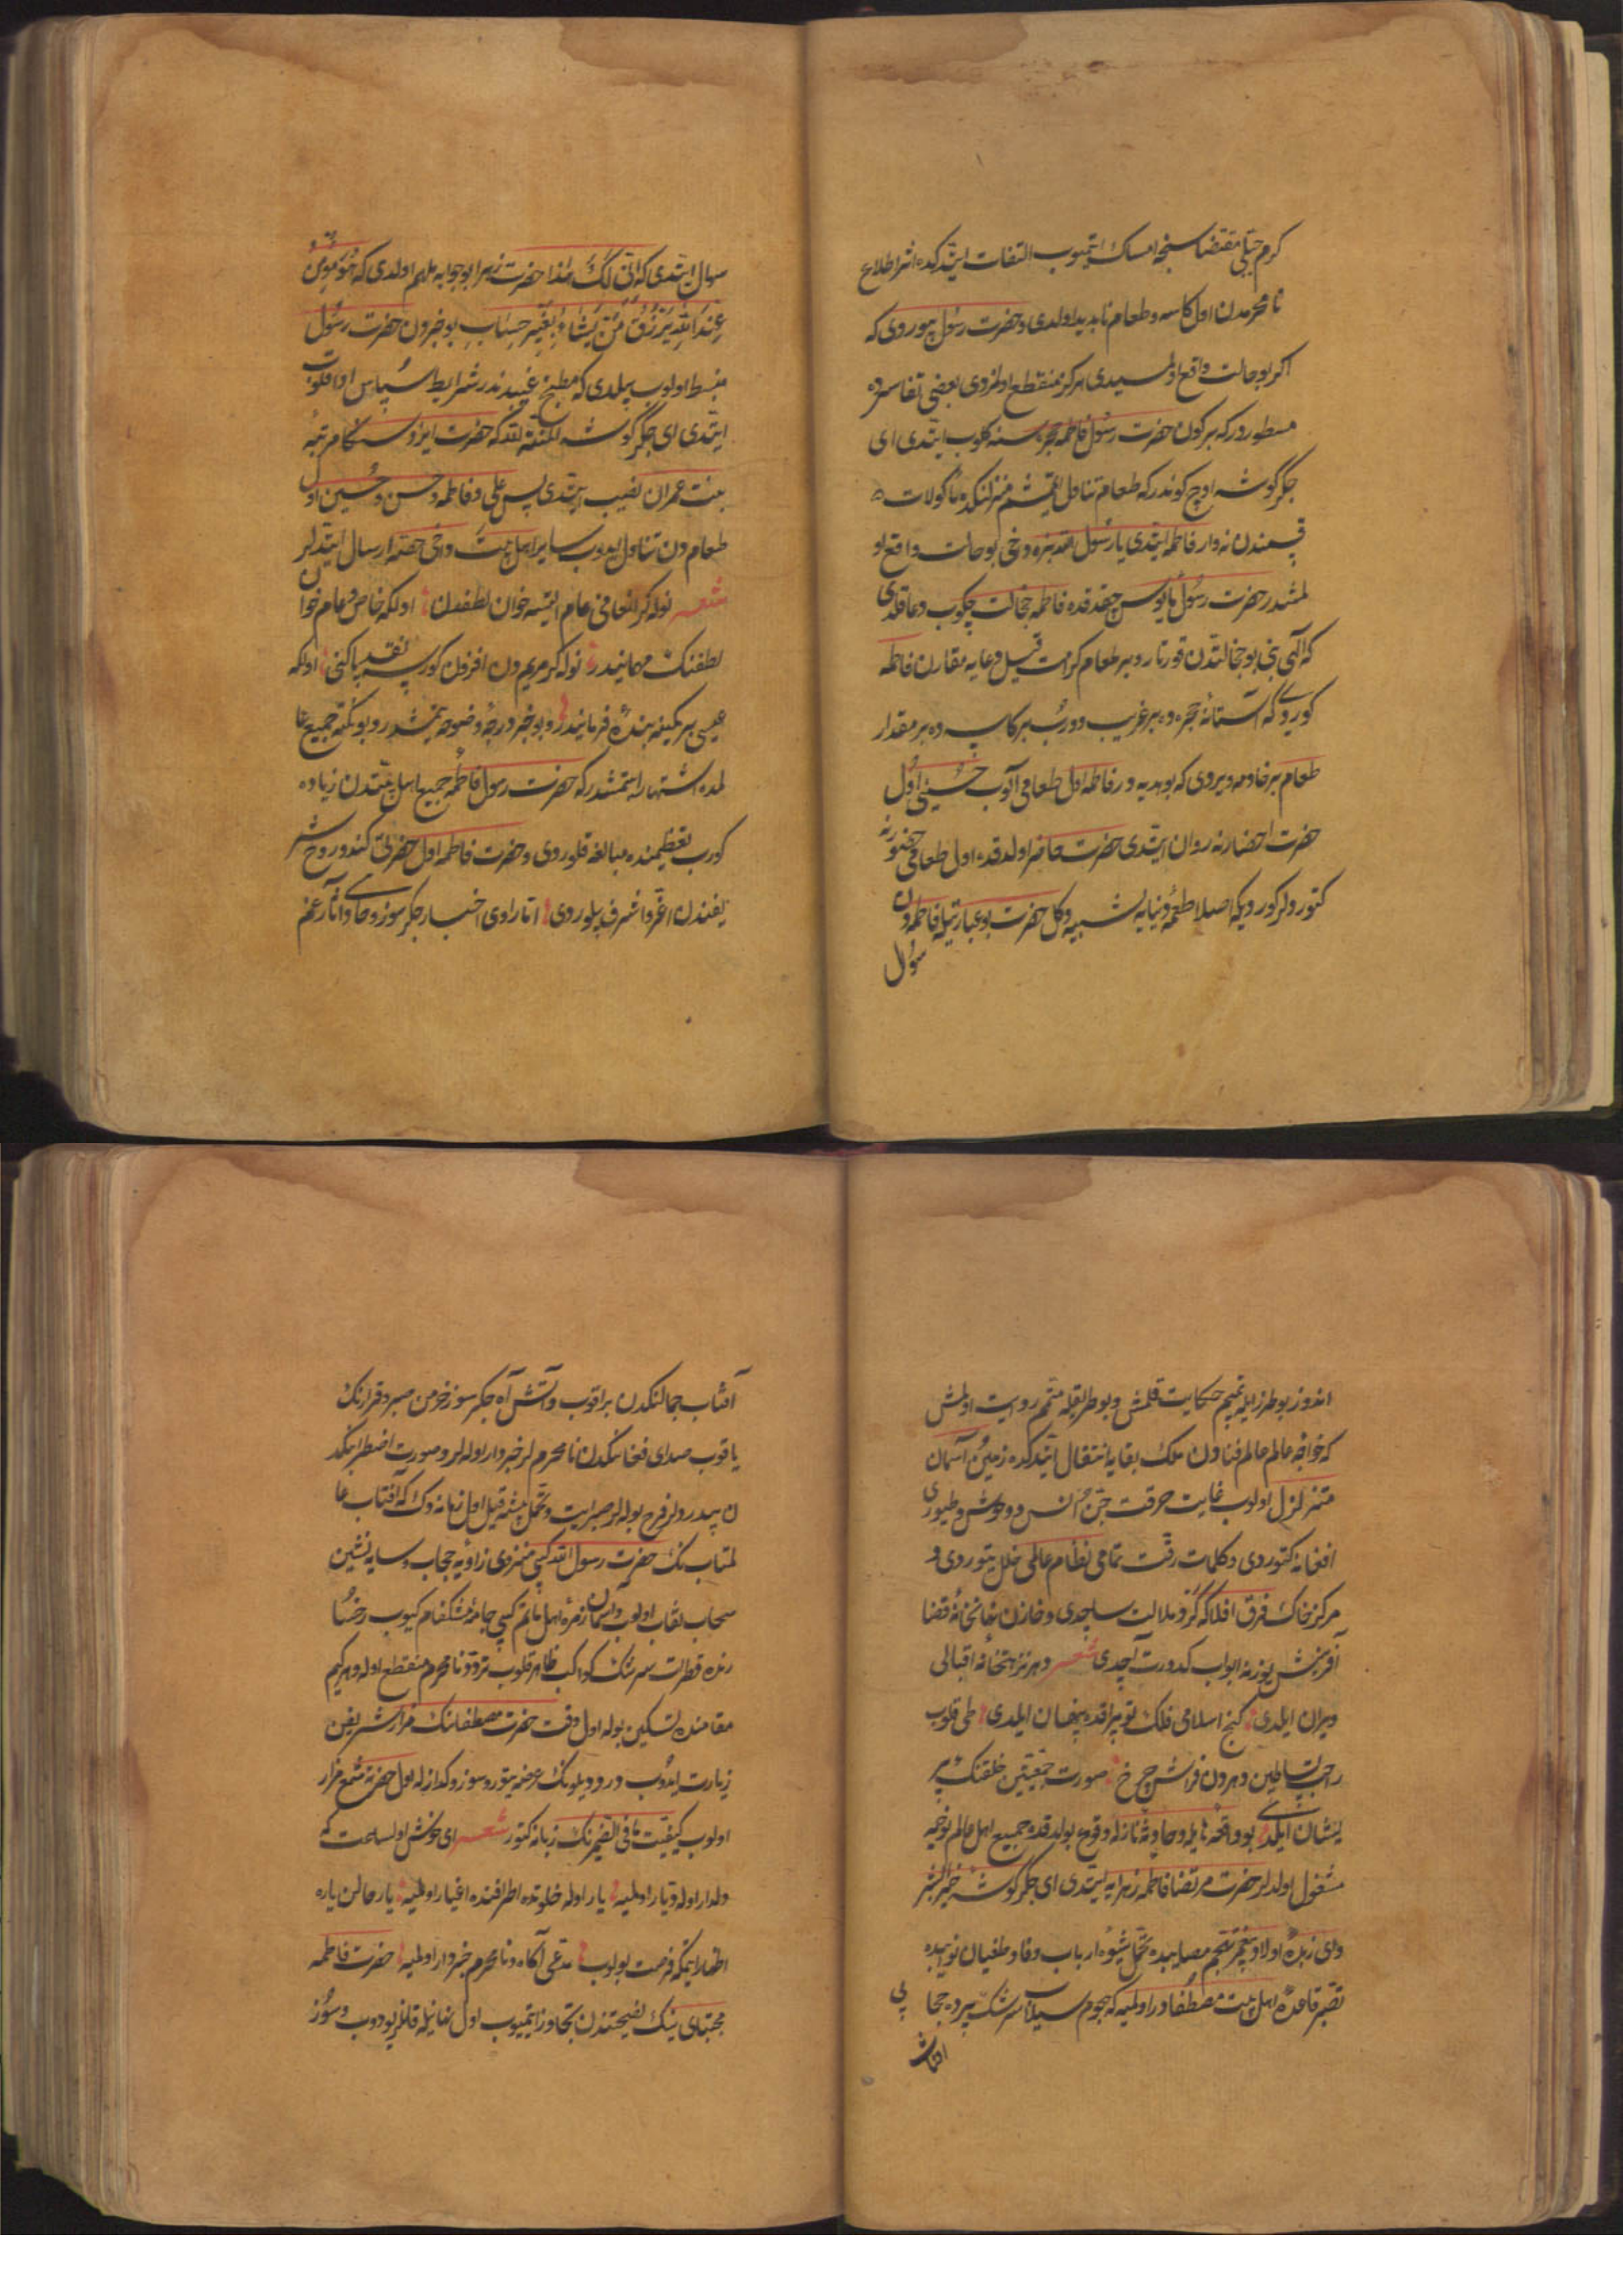 کرم جبلی مقتضاسنجه امساک ایتمیوب التفات ایتدکده اثر اطلاع
نامحرمدن اول کاسه و طعام ناپدید اولدی و حضرت رسول بیوروی که
اکر بو حالت واقع اولمسیدی هرکز منقطع اولمزدی بعضی تفاسیرده
مسطوردر که بر کون حضرت رسول فاطمه حجره سنه کلوب ایتدی ای
جکرکوشه اوچ کوندر که طعام تناول ایتمشم منزلنکده مأکولات
قسمندن نه وار فاطمه ایتدی یا رسول الله بزه دخی بو حالت واقع او
لمشدر حضرت رسول مأیوس چقدقده فاطمه خجالت چکوب دعا قلدی
که الهی بنی بو خجالتدن قورتار و بر طعام کرامت قیل دعایه مقارن فاطمه
کوردی که آستانهٔ حجره ده بر غریب دوروب بر کاسه ده بر مقدار
طعام بر خادمه ویردی که بو هدیه در فاطمه اول طعامی آلوب حسینی اول
حضرت احضارنه روان ایتدی حضرت حاضر اولدقده اول طعامی حضورنه
کتوردلر کوردیکه اصلا طعمهٔ دنیایه شبیه دکل حضرت بو عبارتیله فاطمه دن
سؤال
سوال ایتدی که انّی لک هذا حضرت زهرا بو جوابه ملهم اولدی که هُوَ مِن
عِندِ اللهِ یَرزُقُ مَن یَشاءُ بِغَیرِ حِسابٍ بو خبردن حضرت رسول
منبسط اولوب بیلدی که مطبخ غیبدندر شرایط سپاس ادا قلوب
ایتدی ای جکرکوشه المنة لله که حضرت ایزد سکا مرتبهٔ
بنت عمران نصیب ایتدی پس علی و فاطمه و حسن و حسین اول
طعام دن تناول ایدوب سایر اهل بیت داخی حصه ارسال ایتدلر
شعر نوله کر انعامی عام ایتسه خوان لطفدن اولکه خاص و عام خوان
لطفنک مهمانیدر نوله کر مریم دن افزون کورسه نقد پاکنی اولکه
عیسی بر کمینه بندهٔ فرمانیدر و بو خبر درجهٔ وضوحه یتمشدر و بو نکته جمیع عا
لمده اشتهار ایتمشدر که حضرت رسول فاطمه جمیع اهل بیتدن زیاده
کورب تعظیمنده مبالغه قلوردی و حضرت فاطمه اول حضرتی کندو روح شر
یفندن اعز و اشرف بیلوردی اما راوی اخبار جکرسوز و حاوی آثار غم
اندوز بو طرز ایله تمیم حکایت قلمش و بو طریقله متمم روایت اولمش
که خواجهٔ عالم عالم فنادن ملک بقایه انتقال ایتدکده زمین و آسمان
متزلزل اولوب غایت حرقت جن و انس و وحوش و طیوری
افغانه کتوردی و کلمات رقت تمامی نظام عالمی خلل یتوردی و
مرکز خاک فرق افلاکه کرد ملالت ساچدی و خازن نهانخانهٔ قضا
آفرینش یوزنه ابواب کدورت آچدی شعر دهر نزهتخانهٔ اقبالی
ویران ایلدی کنج اسلامی فلک توپراقده پنهان ایلدی طی قلوب
راحت بساطین دهردن فراش چرخ صورت جمعیتین خلقنک پر
یشان ایلدی بو واقعهٔ هایله و حادثهٔ نازله وقوع بولدقده جمیع اهل عالم نوحیه
مشغول اولدلر حضرت مرتضا فاطمه زهرایه ایتدی ای جکرکوشهٔ خیر البشر
و ای زبدهٔ اولاد پیغمبر تهجم مصایبده تحمل شیوهٔ ارباب وفا و طغیان نوایبده
تصبر قاعدهٔ اهل بیت مصطفادر اولمیه که هجوم سیلاب سرشک پرده حجابی
افتاب
آفتاب جمالنکدن براقوب و آتش آه جکرسوز خرمن صبر و قرارنک
یاقوب صدای فغانکدن نامحرم لر خبردار اوله لر و صورت اضطرابنکد
ن بیدردلر فرح بوله لر صبر ایت و تحمل پیشه قیل اول زمانه دک که آفتاب عا
لمتابنک حضرت رسول الله کبی منزوی زاویهٔ حجاب و سایه نشین
سحاب نقاب اولوب و آسمان زمرهٔ اهل ماتم کبی جامهٔ مشکفام کیوب رخسا
رنده قطرات سرشک کواکب ظاهر قلوب تردد نامحرم منقطع اوله و هر کیم
مقامنده تسکین بوله اول وقت حضرت مصطفانک مزار شریفین
زیارت ایدوب درد دیلونک عرضه یتور و سوز و کداز له اول حضرته شمع مزار
اولوب کیفیت ما فی الضمیرنک زبانه کتور شعر ای خوش اول ساعت که
دلدار اوله و دیار اولمیه یار اوله خلوتده اطرافنده اغیار اولمیه یار حالن یاره
اظهار ایتمکه فرصت بولوب مدعی آکاه و نامحرم خبردار اولمیه حضرت فاطمه
مجتبای ینک نصیحتندن تجاوز ایتمیوب اول نهانیله قانلر یودوب و سوز